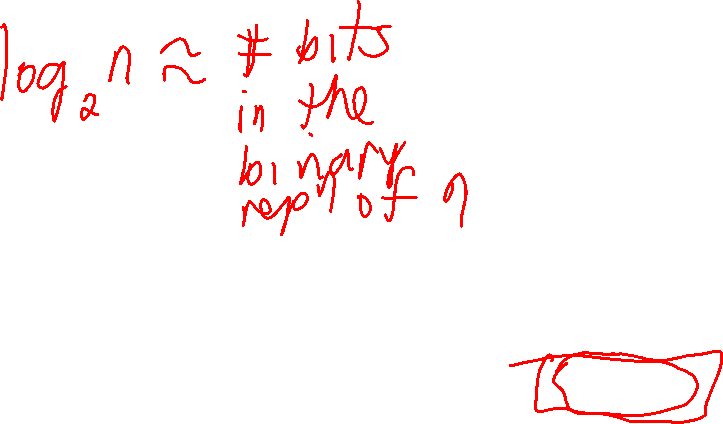 log₂ n ≈ # bits
in the
binary
repⁿ of n